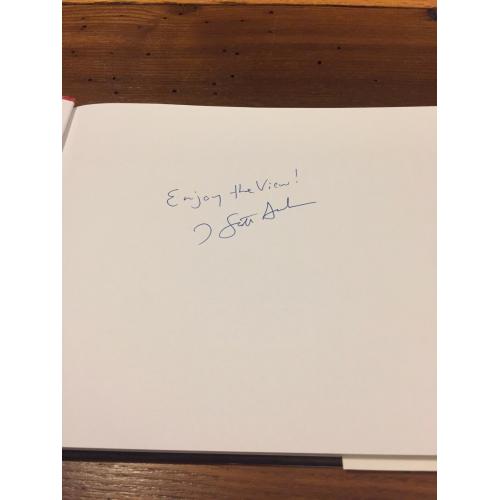 Enjoy the View!
Scott